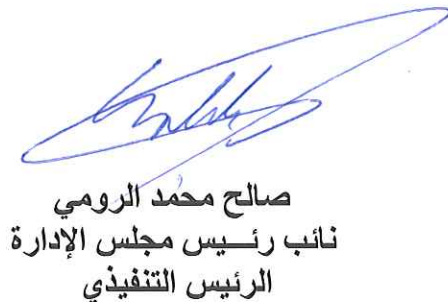 صالح محمد الرومي
نائب رئـــيس مجلس الإدارة
الرئيس التنفيذي